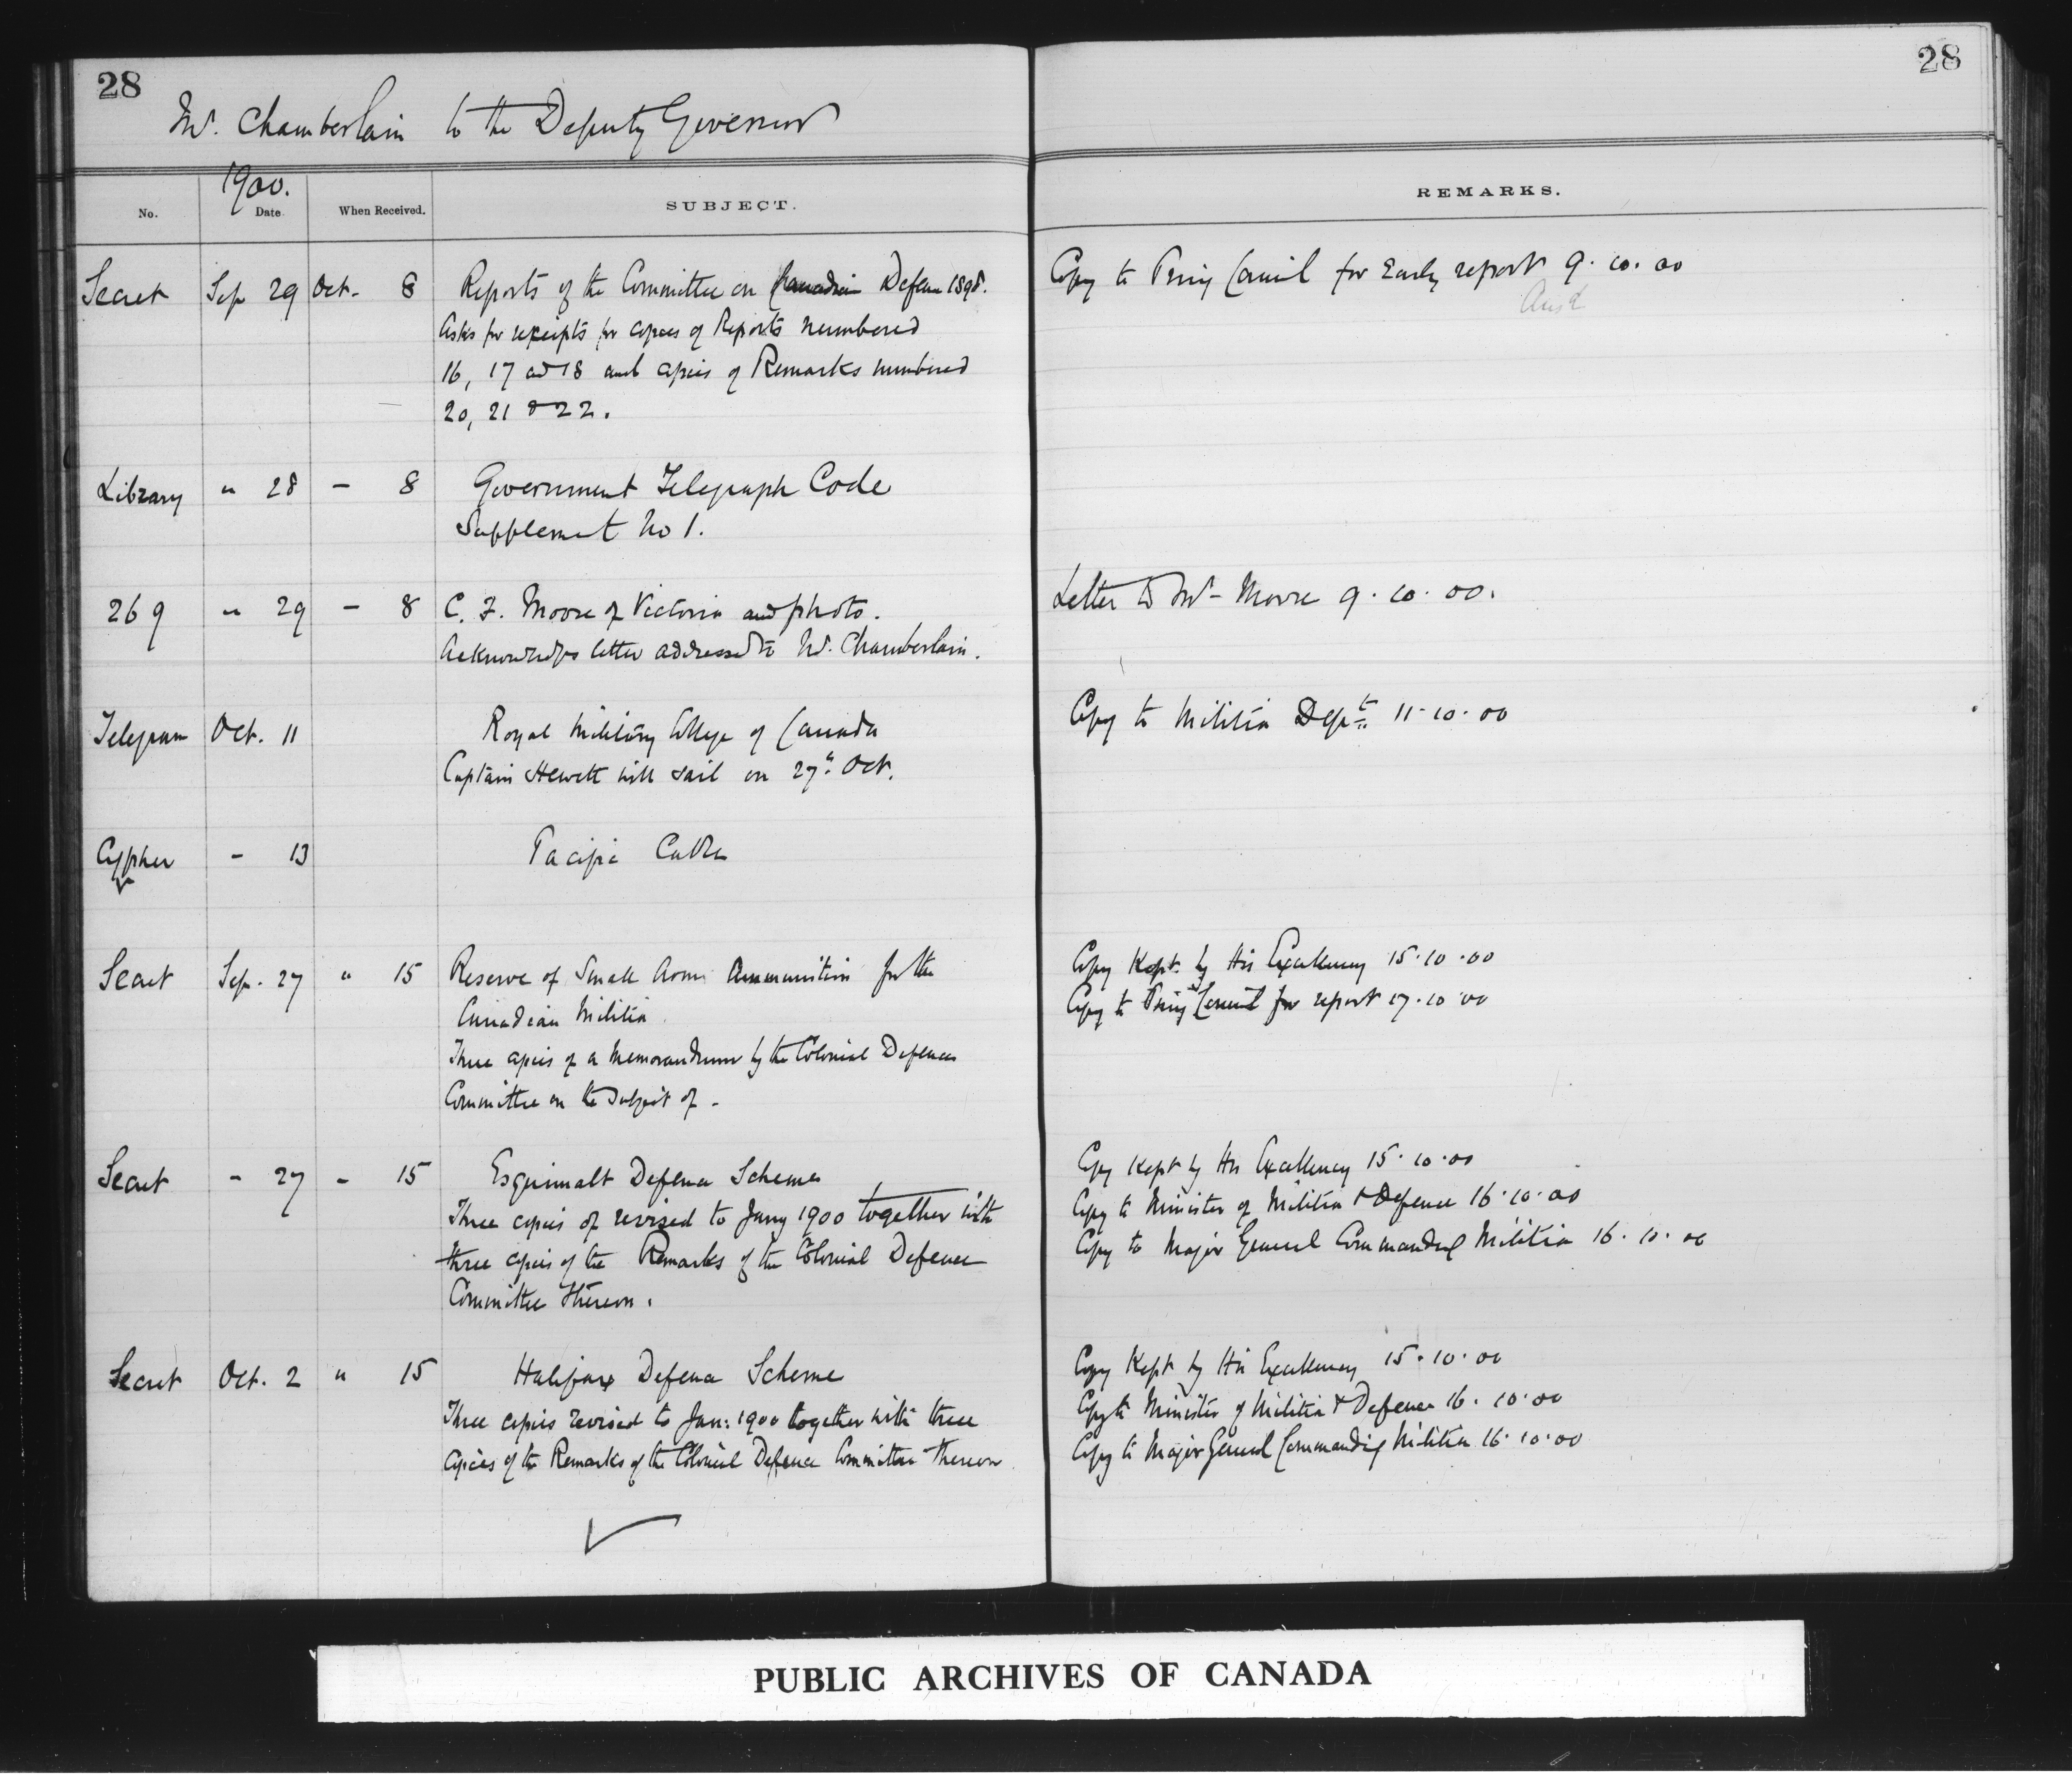 28
28
Mr. Chamberlain to the Deputy Governor
1900.
No. Date When Received. SUBJECT. REMARKS.
Secret Sep 29 Oct. 8 Reports of the Committee on Canadian Defence 1898. Copy to Privy Council for Early report 9.10.00
Ansd
Asks for receipts for copies of Reports numbered
16, 17 and 18 and copies of Remarks numbered
20, 21 & 22.
Library " 28 - 8 Government Telegraph Code
Supplement No 1.
269 " 29 - 8 C. F. Moore of Victoria and photo. Letter to Mr Moore 9.10.00.
Acknowledges letter addressed to Mr. Chamberlain.
Telegram Oct. 11 Royal Military College of Canada Copy to Militia Dept 11.10.00
Captain Hewett will sail on 27th Oct.
Cypher - 13 Pacific Cable
Secret Sep. 27 " 15 Reserve of Small Arms Ammunition for the Copy Kept by His Excellency 15.10.00
Canadian Militia Copy to Privy Council for report 17.10.00
Three copies of a Memorandum by the Colonial Defence
Committee on the Subject of -
Secret - 27 - 15 Esquimalt Defence Scheme Copy Kept by His Excellency 15.10.00
Three copies of revised to Jany 1900 together with Copy to Minister of Militia & Defence 16.10.00
three copies of the Remarks of the Colonial Defence Copy to Major General Commandg Militia 16.10.00
Committee thereon.
Secret Oct. 2 " 15 Halifax Defence Scheme Copy Kept by His Excellency 15.10.00
Three copies revised to Jan: 1900 together with three Copy to Minister of Militia & Defence 16.10.00
Copies of the Remarks of the Colonial Defence Committee thereon Copy to Major General Commanding Militia 16.10.00
PUBLIC ARCHIVES OF CANADA